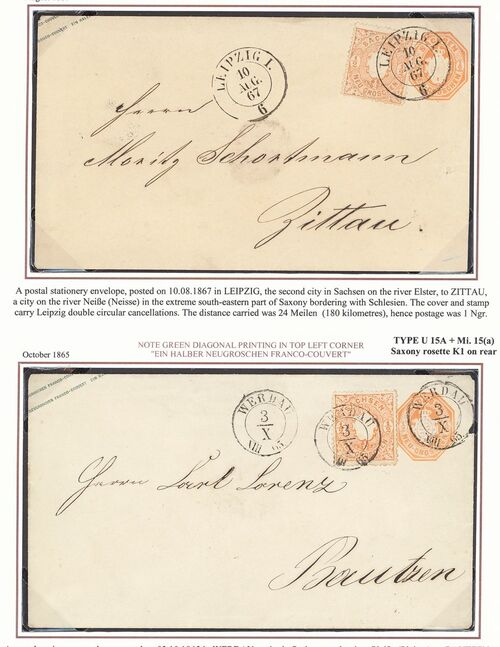 LEIPZIG I.
10
AUG.
67
6
LEIPZIG I.
10
AUG.
67
6
Herrn
Moritz Schortmann
Zittau.
A postal stationery envelope, posted on 10.08.1867 in LEIPZIG, the second city in Sachsen on the river Elster, to ZITTAU,
a city on the river Neiße (Neisse) in the extreme south-eastern part of Saxony bordering with Schlesien. The cover and stamp
carry Leipzig double circular cancellations. The distance carried was 24 Meilen (180 kilometres), hence postage was 1 Ngr.
NOTE GREEN DIAGONAL PRINTING IN TOP LEFT CORNER
"EIN HALBER NEUGROSCHEN FRANCO-COUVERT"
TYPE U 15A + Mi. 15(a)
Saxony rosette K1 on rear
October 1865
WERDAU
3
X
VIII 65
WERDAU
3
X
VIII 65
WERDAU
3
X
VIII 65
SACHSEN
Herrn Carl Lorenz
Bautzen